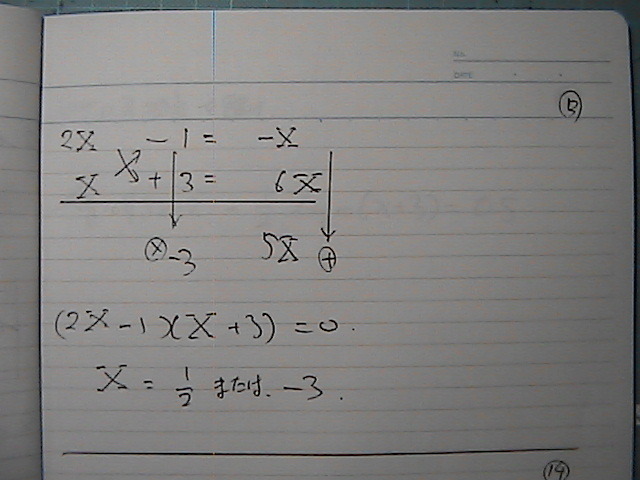 NO.
DATE
2x - 1 = -x
x + 3 = 6x
⊗ -3 5x ⊕
(2x-1)(x+3)=0.
x = 1/2 または、-3.
⑲